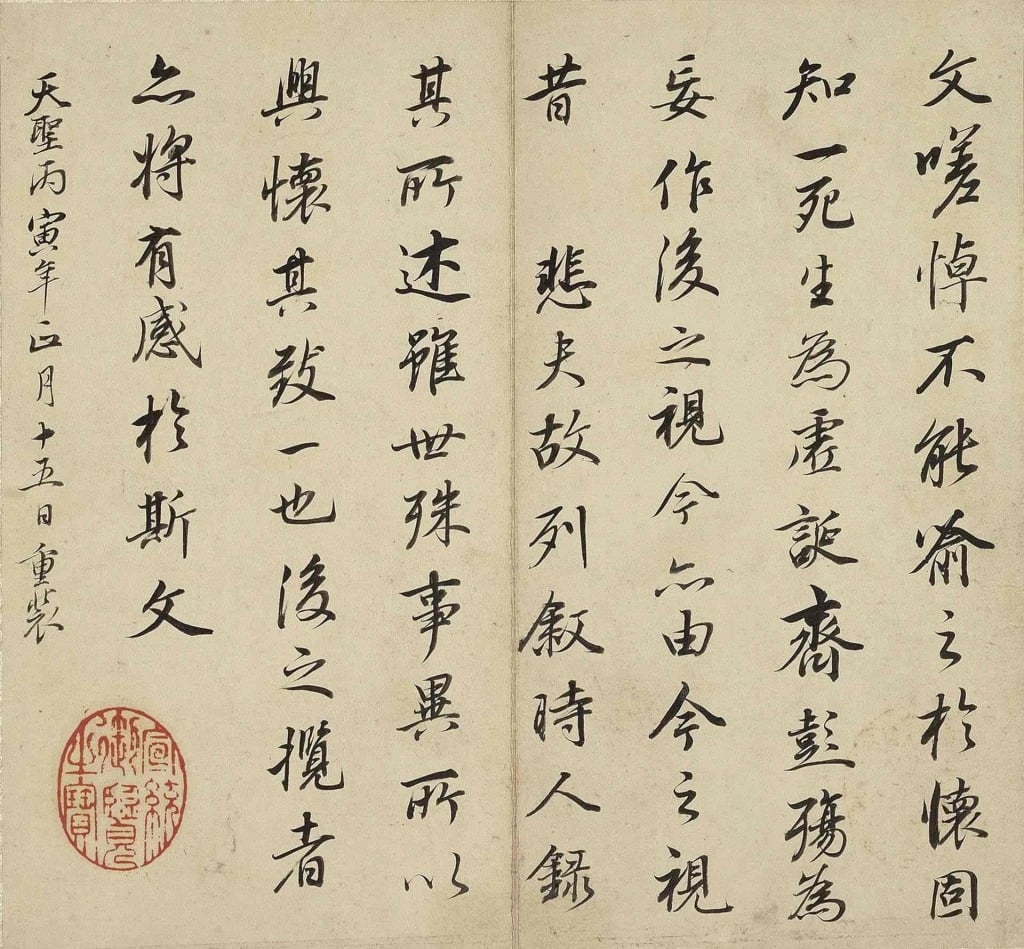 文嗟悼不能喻之於懷固
知一死生為虛誕齊彭殤為
妄作後之視今亦由今之視
昔 悲夫故列敘時人錄
其所述雖世殊事異所以
興懷其致一也後之攬者
亦將有感於斯文
天聖丙寅年正月十五日重裝
宣統
御覽
之寶